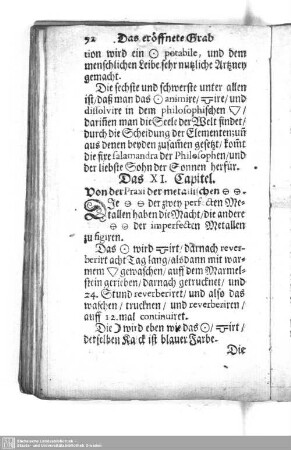 52 Das eröffnete Grab
tion wird ein ☉ potabile, und dem
menschlichen Leibe sehr nutzliche Artzney
gemacht.
Die sechste und schwerste unter allen
ist/ daß man das ☉ animire/ 🜍ire/ und
dissolvire in dem philosophischen ▽/
dariñen man die Seele der Welt findet/
durch die Scheidung der Elementen: uñ
aus denen beyden zusam̃en gesetzt/ kom̃t
die fixe salamandra der Philosophen/ und
der liebste Sohn der Sonnen herfür.
Das XI. Capitel.
Von der Praxi der metallischen 🜔 🜔.
Die 🜔 🜔 der zwey perfecten Me-
tallen haben die Macht/ die andere
🜔 🜔 der imperfecten Metallen
zu figiren.
Das ☉ wird irt/ darnach rever-
berirt acht Tag lang/ alsdann mit war-
mem ▽ gewaschen/ auff dem Marmel-
stein gerieben/ darnach getrucknet/ und
24. Stund reverberiret/ und also das
waschen/ trucknen/ und reverberiren/
auff 12. mal continuiret.
Die ☽ wird eben wie das ☉/ irt/
derselben Kalck ist blauer Farbe.
Die